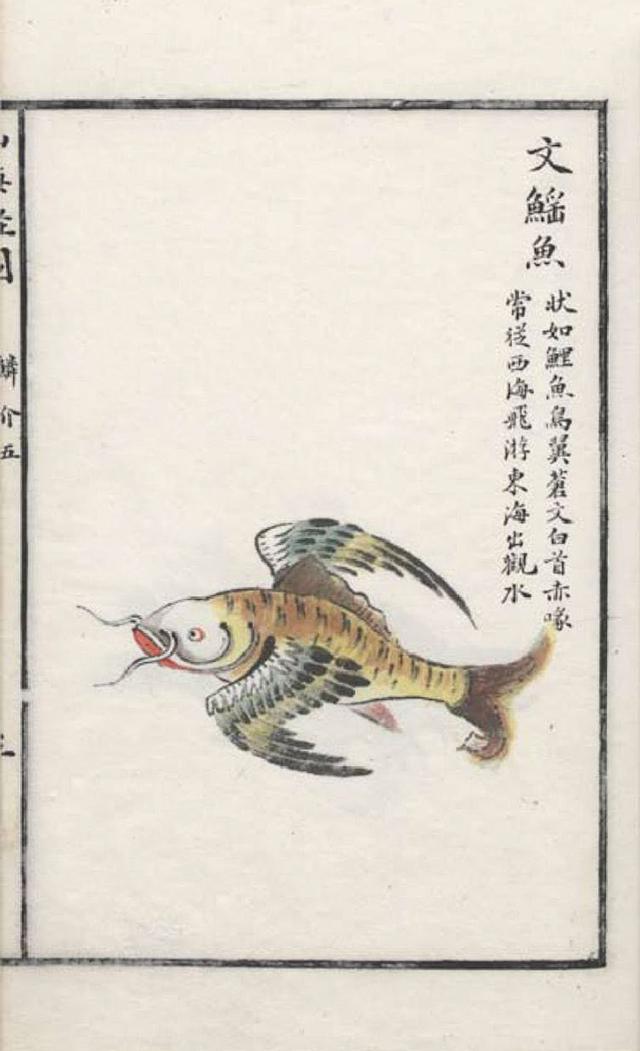 文鰩魚
狀如鯉魚鳥翼蒼文白首赤喙
常從西海飛游東海出觀水
鱗介五